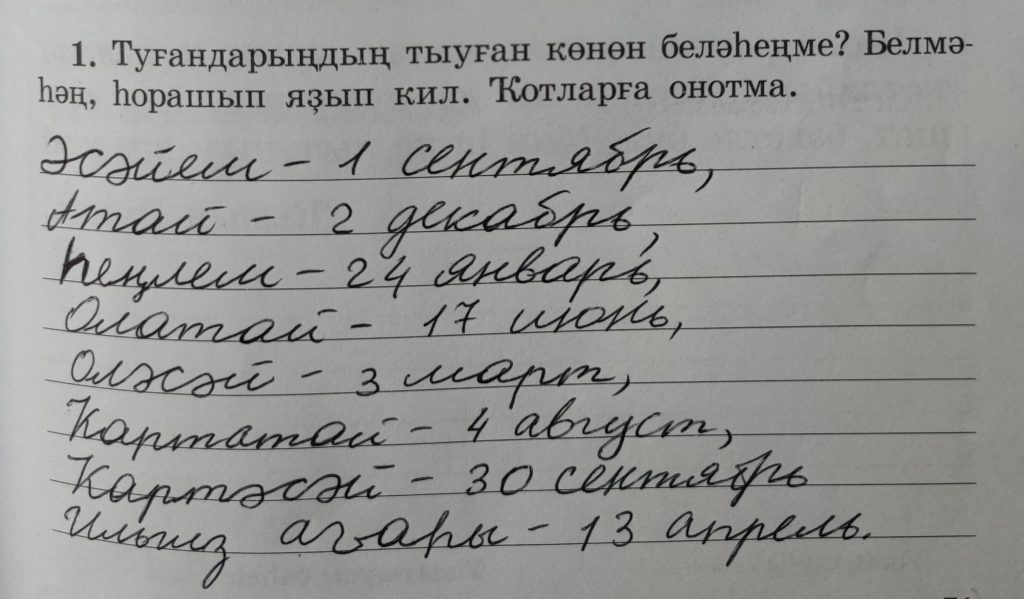 1. Туғандарыңдың тыуған көнөн беләһеңме? Белмә-
һәң, һорашып яҙып кил. Ҡотларға онотма.
Әсәйем – 1 сентябрь,
Атай – 2 декабрь,
Һеңлем – 24 январь,
Олатай – 17 июнь,
Оләсәй – 3 март,
Ҡартатай – 4 август,
Ҡартәсәй – 30 сентябрь
– 13 апрель.